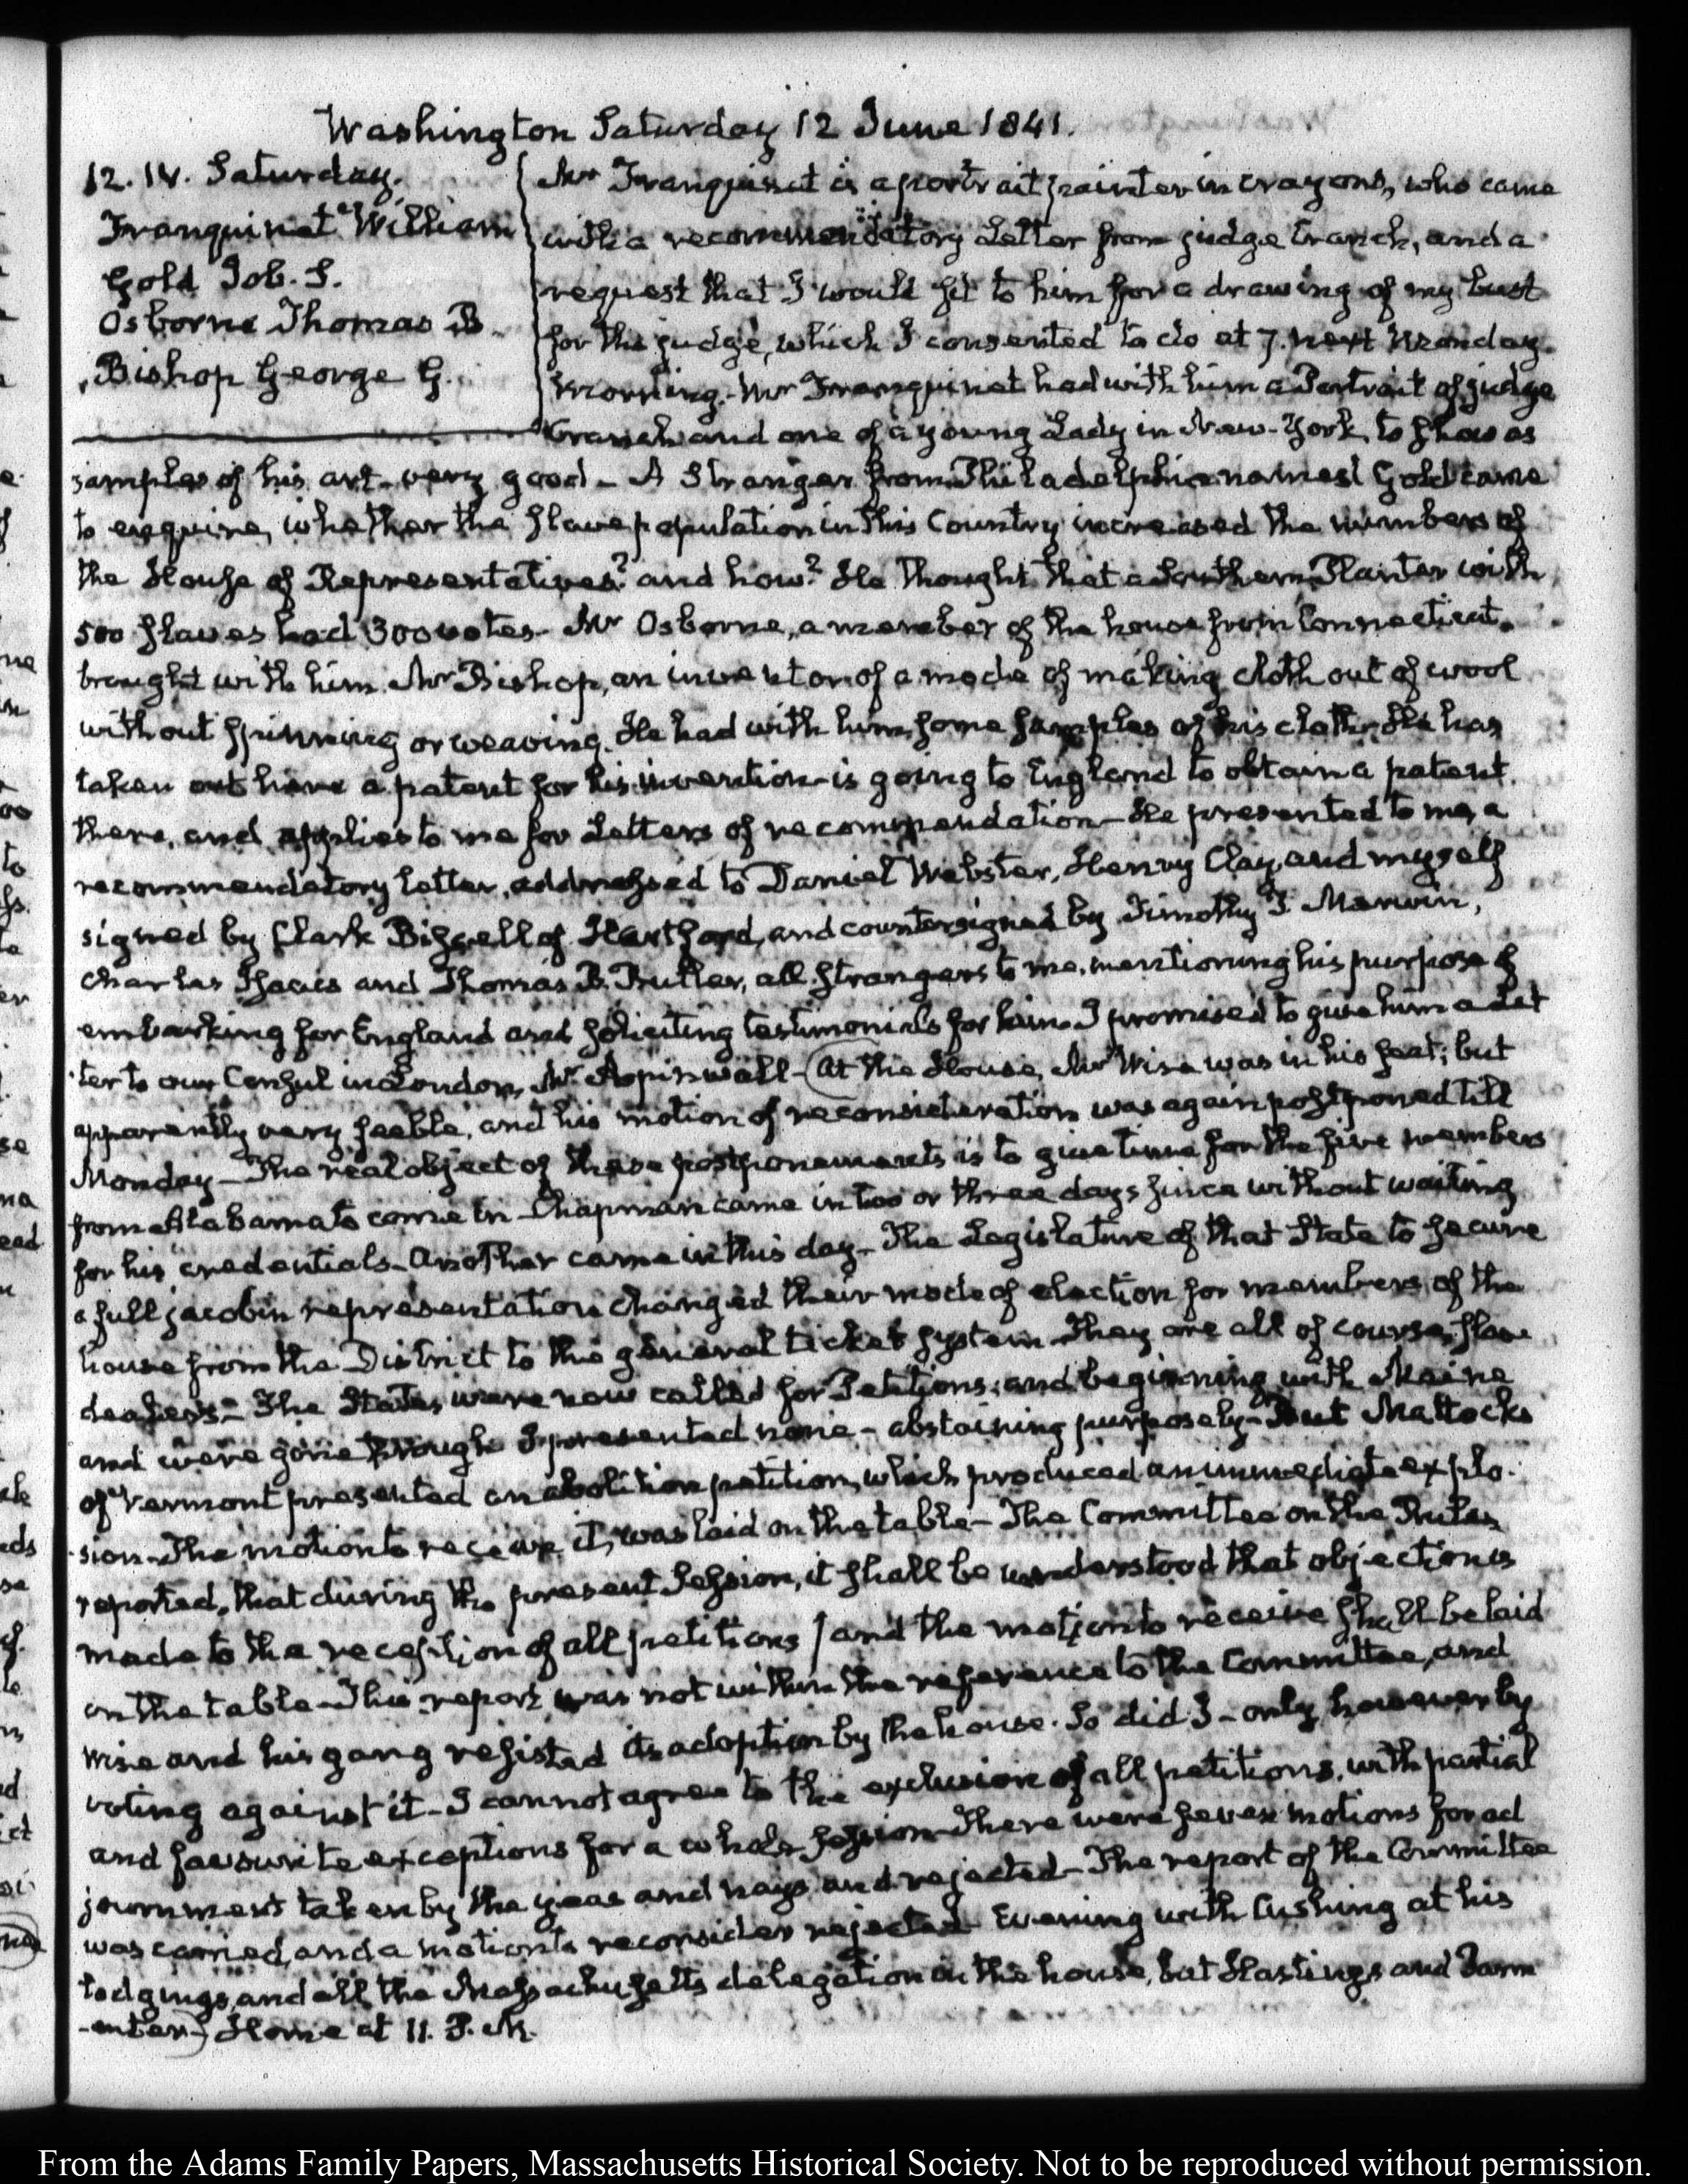 Washington Saturday 12 June 1841.
12. IV. Saturday.
Franquinet William
Gold Job. S.
Osborne Thomas B.
Bishop George G.
Mr Franquinet is a portrait painter in crayons, who came
with a recommendatory Letter from judge Cranch, and a
request that I would sit to him for a drawing of my bust
for the judge, which I consented to do at 7. next Monday
Morning. Mr Franquinet had with him a Portrait of judge
Cranch and one of a young Lady in New-York, to show as
samples of his art - very good - A Stranger from Philadelphia named Gold came
to enquire, whether the slave population in this Country increased the numbers of
the House of Representatives? and how? He thought that a Southern Planter with
500 slaves had 300 votes - Mr Osborne, a member of the house from Connecticut,
brought with him Mr Bishop, an inventor of a mode of making cloth out of wool
without spinning or weaving. He had with him some samples of his cloth. He has
taken out here a patent for his invention - is going to England to obtain a patent
there, and applies to me for Letters of recommendation - He presented to me, a
recommendatory letter, addressed to Daniel Webster, Henry Clay, and myself
signed by Clark Bissell of Hartford, and countersigned by Timothy T. Merwin,
Charles and Thomas B. Butler, all strangers to me, mentioning his purpose of
embarking for England and soliciting testimonials for him. I promised to give him a Let
ter to our Consul in London, Mr Aspinwall - At the House, Mr Wise was in his seat; but
apparently very feeble, and his motion of reconsideration was again postponed till
Monday - The real object of these postponements is to give time for the five members
from Alabama to come in - Chapman came in two or three days since without waiting
for his credentials - Another came in this day - The Legislature of that State to secure
a full jacobin representation changed their mode of election for members of the
house from the District to the general ticket system - They are all of course, slave
dealers - The States were now called for Petitions; and beginning with Maine
and were gone through I presented none - abstaining purposely - But Mattocks
of Vermont presented an abolition petition, which produced an immediate explo-
sion - The motion to receive it, was laid on the table - The Committee on the Rules,
reported, that during the present Session, it shall be understood that objection is
made to the reception of all petitions and the motion to receive shall be laid
on the table - This report was not within the reference to the Committee, and
Wise and his gang resisted its adoption by the house. So did I - only however by
voting against it - I cannot agree to the exclusion of all petitions, with partial
and favourite exceptions for a whole session - There were seven motions for ad
journment taken by the yeas and nays and rejected - The report of the Committee
was carried, and a motion to reconsider rejected - Evening with Cushing at his
lodgings, and all the Massachusetts delegation in the house, but Hastings and Parm
-enter - Home at 11. P.M.
From the Adams Family Papers, Massachusetts Historical Society. Not to be reproduced without permission.